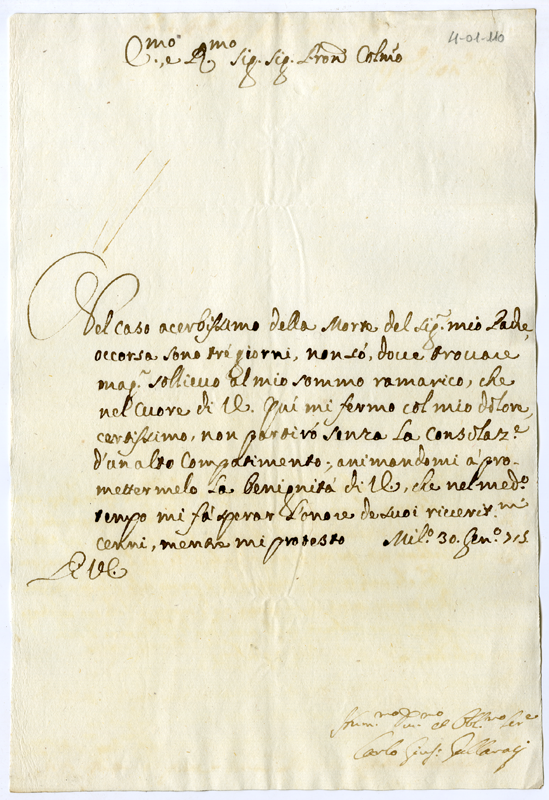 4-01-110
E.mo, e R.mo Sig. Sig. Pron Colmo
Nel caso acerbissimo della Morte del Sig.r mio Padre,
occorsa sono tré giorni, non só, doue trouare
mag.r sollieuo al mio sommo ramarico, che
nel Cuore di VE. Quí mi fermo col mio dolore,
certissimo, non partiró senza la Consolaz.e
d'un alto Compatimento, animandomi á pro-
mettermelo la Benignitá di VE, che nel med.o
tempo mi fá sperar l'onore de suoi riueritmi
cenni, mentre mi protesto Mil.o 30. Gen.o 715
D VE.
Hum.mo Deu.mo et Obl.mo Ser.e
Carlo Gius.e Gallarati